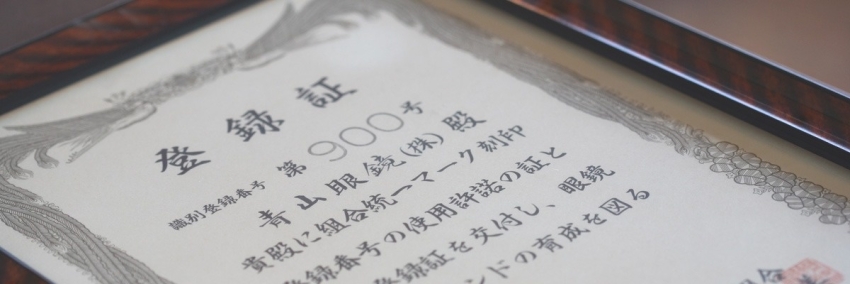 登録証
識別登録番号 第900号
青山眼鏡(株)殿
貴殿に組合統一マーク刻印
登録番号の使用許諾の証と
登録証を交付し、眼鏡
ンドの育成を図る